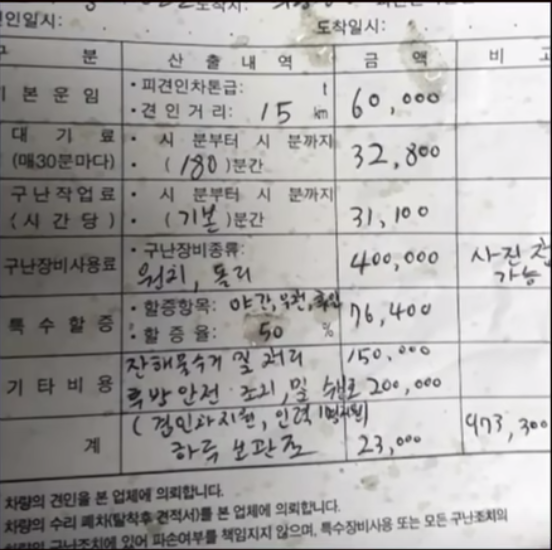 견인일시: 도착지:
도착일시:
구 분 산 출 내 역 금 액 비 고
기 본 운 임 • 피견인차톤급: t
• 견 인 거 리 : 15 km 60,000
대 기 료 • 시 분부터 시 분까지
(매30분마다) • ( 180 )분간 32,800
구난작업료 • 시 분부터 시 분까지
( 시 간 당 ) • ( 기본 )분간 31,100
구난장비사용료 • 구난장비종류: 400,000 사진
윈치, 돌리 가능
특 수 할 증 • 할증항목: 야간, 우천, 휴일 76,400
• 할 증 율 : 50 %
기 타 비 용 잔해물수거 및 처리 150,000
후방안전 조치, 및 200,000
(견인차지원, 인력 1명지원)
계 하루 보관료 23,000 973,300
차량의 견인을 본 업체에 의뢰합니다.
차량의 수리 폐차(탈착후 견적서)를 본 업체에 의뢰합니다.
차량의 구난조치에 있어 파손여부를 책임지지 않으며, 특수장비사용 또는 모든 구난조치의